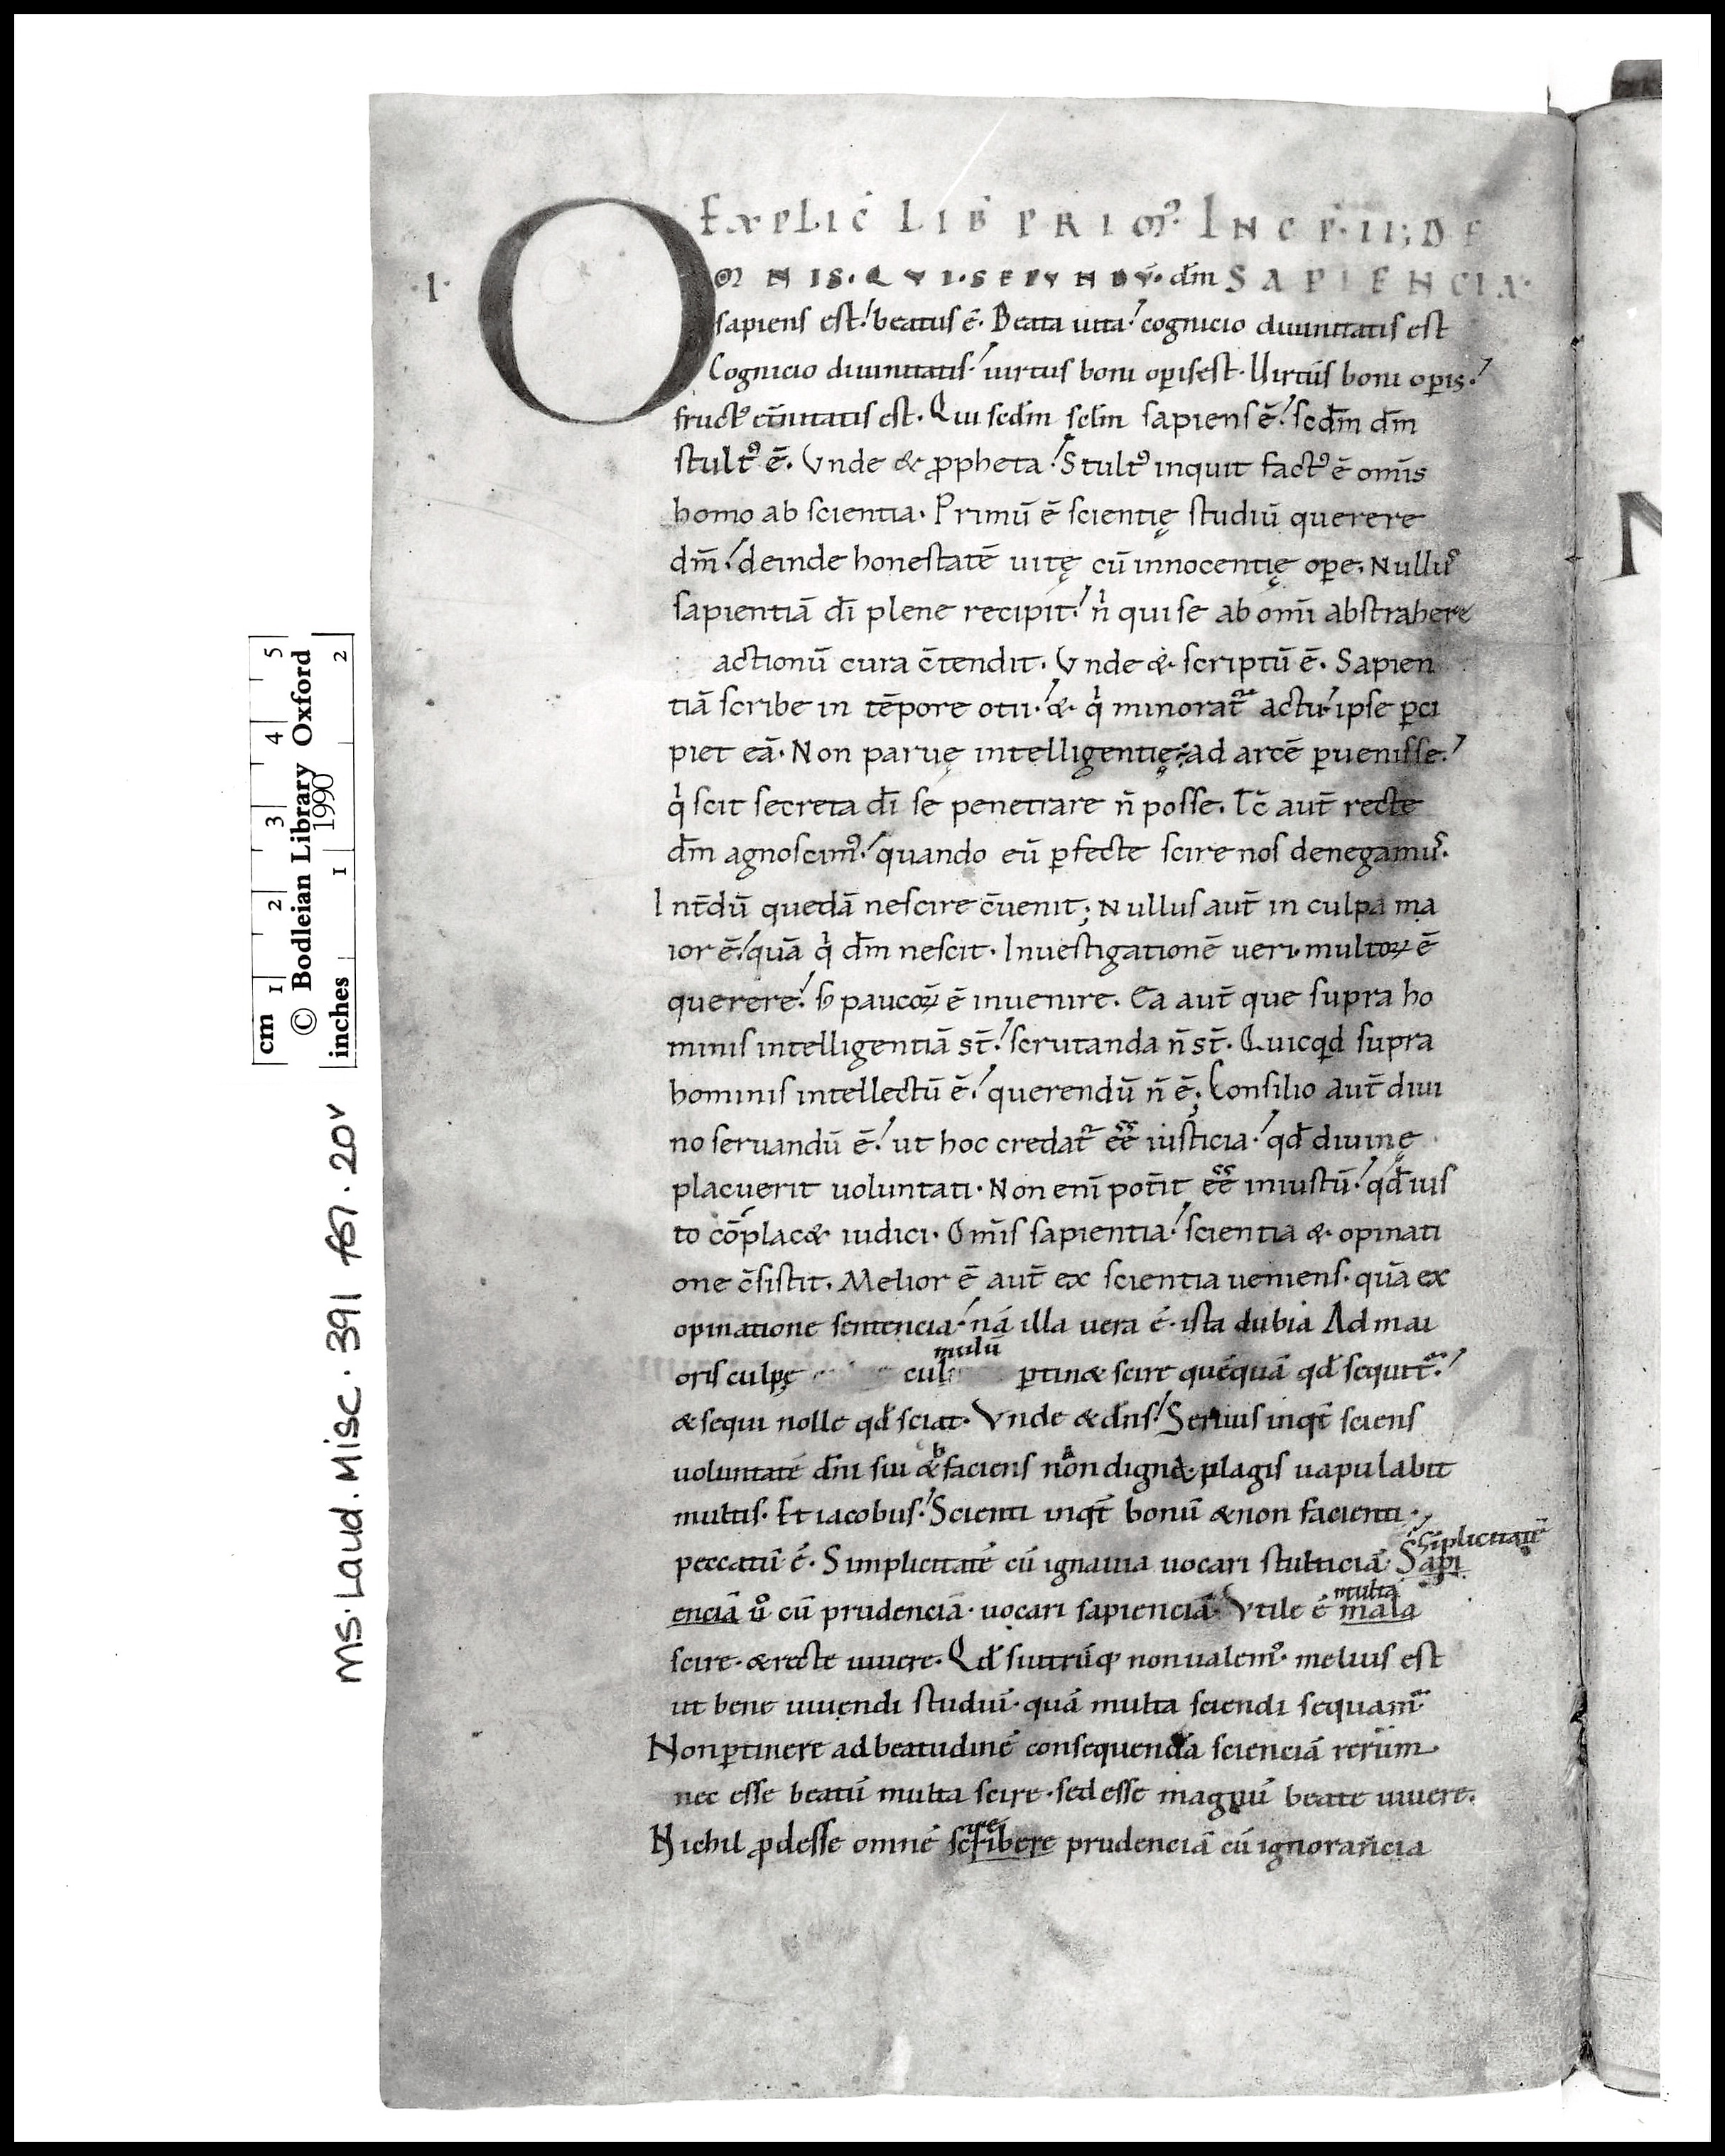 Explic̄ Lib̄ Primꝰ. Incp̄. II; De
·I· OMNIS. QVI. SECVNDV̄. dm̄ SAPIENCIA.
sapiens est. beatus ē. Beata uita. cognicio diuinitatis est
Cognicio diuinitatis. uirtus boni op̲is est. Uirtus boni op̲is.
fructꝰ et̄nitatis est. Qui scdm̄ sclm̄ sapiens ē. scdm̄ dm̄
stultꝰ ē. Vnde & ꝓpheta. Stultꝰ inquit factꝰ ē om̄is
homo ab scientia. Primū ē scientię studiū querere
dm̄. deinde honestatē uitę cū innocentię oꝑe. Nullꝰ
sapientiā dī plene recipit. n̄ qui se ab om̄i abstrahere
actionū cura c̄tendit. Vnde & scriptū ē. Sapien
tiā scribe in tēpore otii. & q̇ minorat̃ actu. ipse ꝑci
piet eā. Non paruę intelligentię. ad arcē ꝑuenisse.
q̇ scit secreta dī se penetrare n̄ posse. Tc̄ aut̄ recte
dm̄ agnoscimꝰ. quando eū ꝑfecte scire nos denegamꝰ.
Int̄dū quedā nescire c̄uenit; Nullus aut̄ in culpa ma
ior ē. quā q̇ dm̄ nescit. Inuestigationē ueri. multoꝝ ē
querere. s; paucoꝝ ē inuenire. Ea aut̄ que supra ho
minis intelligentiā st̄. scrutanda n̄ st̄. Quicqd supra
hominis intellectū ē. querendū n̄ ē; Consilio aut̄ diui
no seruandū ē. ut hoc credat̃ eē̄ iusticia. qđ diuinę
placuerit uoluntati. Non enī pot̄it eē̄ iniustū. qđ ius
to cōplac& iudici. Om̄is sapientia. scientia & opinati
one c̄sistit. Melior ē aut̄ ex scientia ueniens. quā ex
opinatione sentencia. nā illa uera ē. ista dubia Ad mai
multū
oris culpę cul ꝑtin& scire quēquā qđ sequit̃.
& sequi nolle qđ sciat. Vnde & dn̄s. Seruus inqt̄ sciens
uoluntatē dn̄i sui & faciens nōn digne. plagis uapulabit
multis. Et iacobus. Scienti inqt̄ bonū & non facienti.
siplicitatē
peccatū ē. Simplicitatē cū ignauia uocari stulticiā. Sapi
multa
enciā u̇o cū prudenciā. uocari sapienciā. Vtile ē mala
scire. & recte uiuere. Qđ si utrūq; non ualemꝰ. melius est
ut bene uiuendi studiū. quā multa sciendi sequam̃
Non ꝑtinere ad beatudinē consequendā scienciā rerum.
nec esse beatū multa scire. sed esse magnū beate uiuere.
ire
Nichil ꝓdesse omnē scribere prudenciā cū ignorancia
N
cm 1 2 3 4 5
© Bodleian Library Oxford
1990
inches 1 2
MS. Laud. Misc. 391 fol. 20v